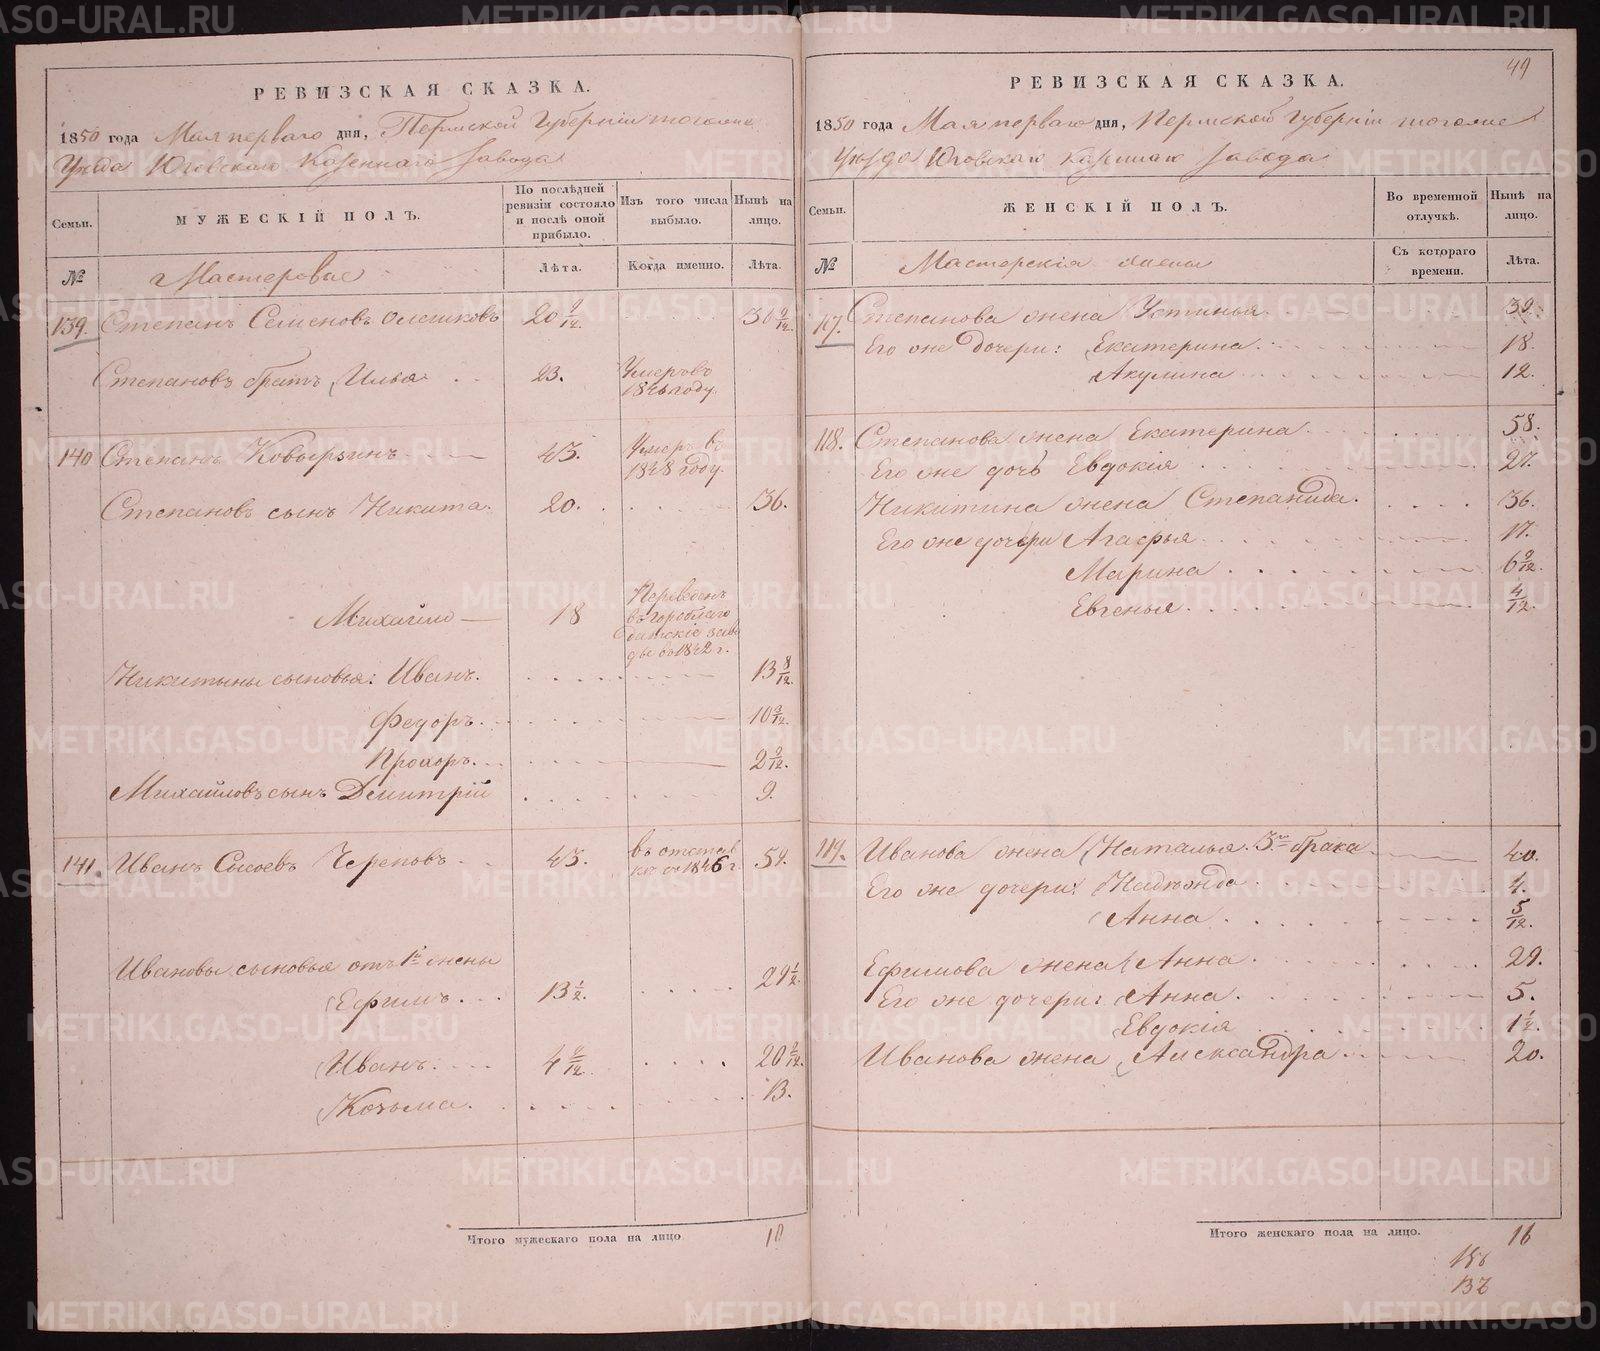 РЕВИЗСКАЯ СКАЗКА.
1850 года Мая перваго дня, Пермской Губерніи тогоже
Уѣзда Юговскаго Казеннаго Завода
Семьи.
МУЖЕСКІЙ ПОЛЪ.
По послѣдней ревизіи состояло и послѣ оной прибыло.
Изъ того числа выбыло.
Нынѣ на лицо.
№
Мастеровые
Лѣта.
Когда именно.
Лѣта.
139. Степанъ Семеновъ 20 9/12. 30 9/12.
Степановъ братъ Илья 23. Умеръ въ
1846 году.
140 Степанъ Ковырзинъ 43. Умеръ въ
1848 году.
Степановъ сынъ Никита. 20. 36.
Михайло 18 Переведенъ
въ Гороблаго
датскіе заво
ды въ 1842 г.
Никитины сыновья: Иванъ. 13 8/12.
Федоръ. 10 2/12.
Прохоръ. 2 2/12.
Михайловъ сынъ Дмитрій 9.
141. Иванъ Сысоевъ Череповъ 43. въ отстав
кѣ въ 1846 г. 59.
Ивановы сыновья отъ 1й жены
Ефимъ 13 1/2. 29 1/2.
Иванъ 4 2/12. 20 2/12.
Козьма. 13.
Итого мужескаго пола на лицо 10
49
РЕВИЗСКАЯ СКАЗКА.
1850 года Мая перваго дня, Пермской Губерніи тогоже
Уѣзда Юговскаго Казеннаго Завода
Семьи.
ЖЕНСКІЙ ПОЛЪ.
Во временной отлучкѣ.
Нынѣ на лицо.
№
Мастерскія жены
Съ котораго времени.
Лѣта.
117. Степанова жена Устинья 39.
Его же дочери: Екатерина. 18.
Акулина 12.
118. Степанова жена Екатерина 58.
Его же дочь Евдокія 27.
Никитина жена Степанида. 36.
Его же дочери Агафья 17.
Марина 6 9/12.
Евгенья 4/12.
119. Иванова жена Наталья 3го брака 40.
Его же дочери: Надежда 4.
Анна 5/12.
Ефимова жена Анна 29.
Его же дочери: Анна. 5.
Евдокія 1 1/2.
Иванова жена Александра 20.
Итого женскаго пола на лицо. 16
METRIKI.GASO-URAL.RU